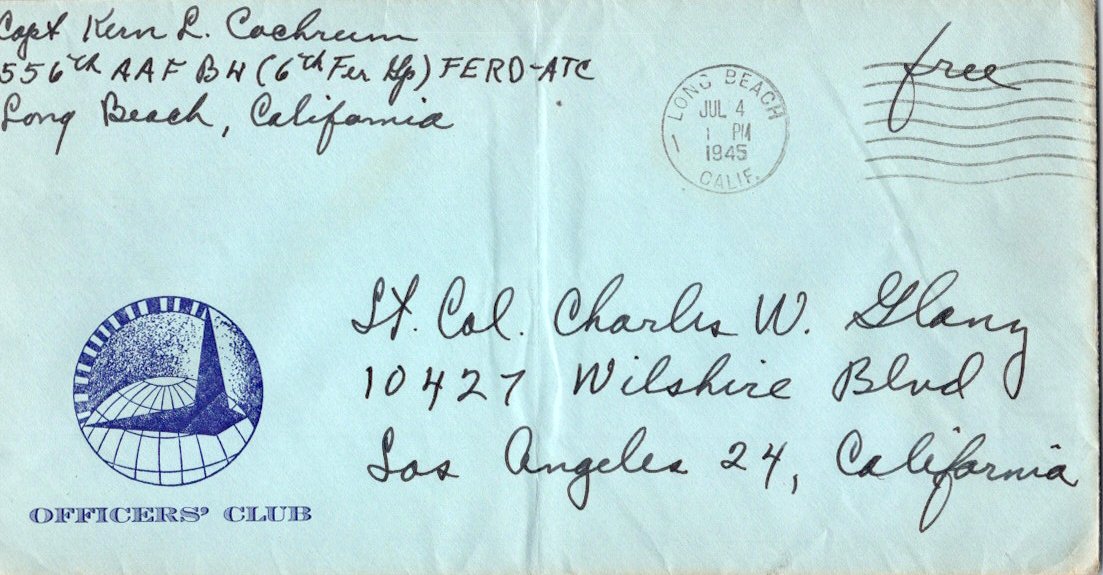 Capt Kern L. Cochrum
556th AAF BU (6th Fer Gp) FERD-ATC
Long Beach, California
free
LONG BEACH
JUL 4
1 PM
1945
CALIF.
Lt. Col. Charles W. Glanz
10427 Wilshire Blvd
Los Angeles 24, California
OFFICERS' CLUB